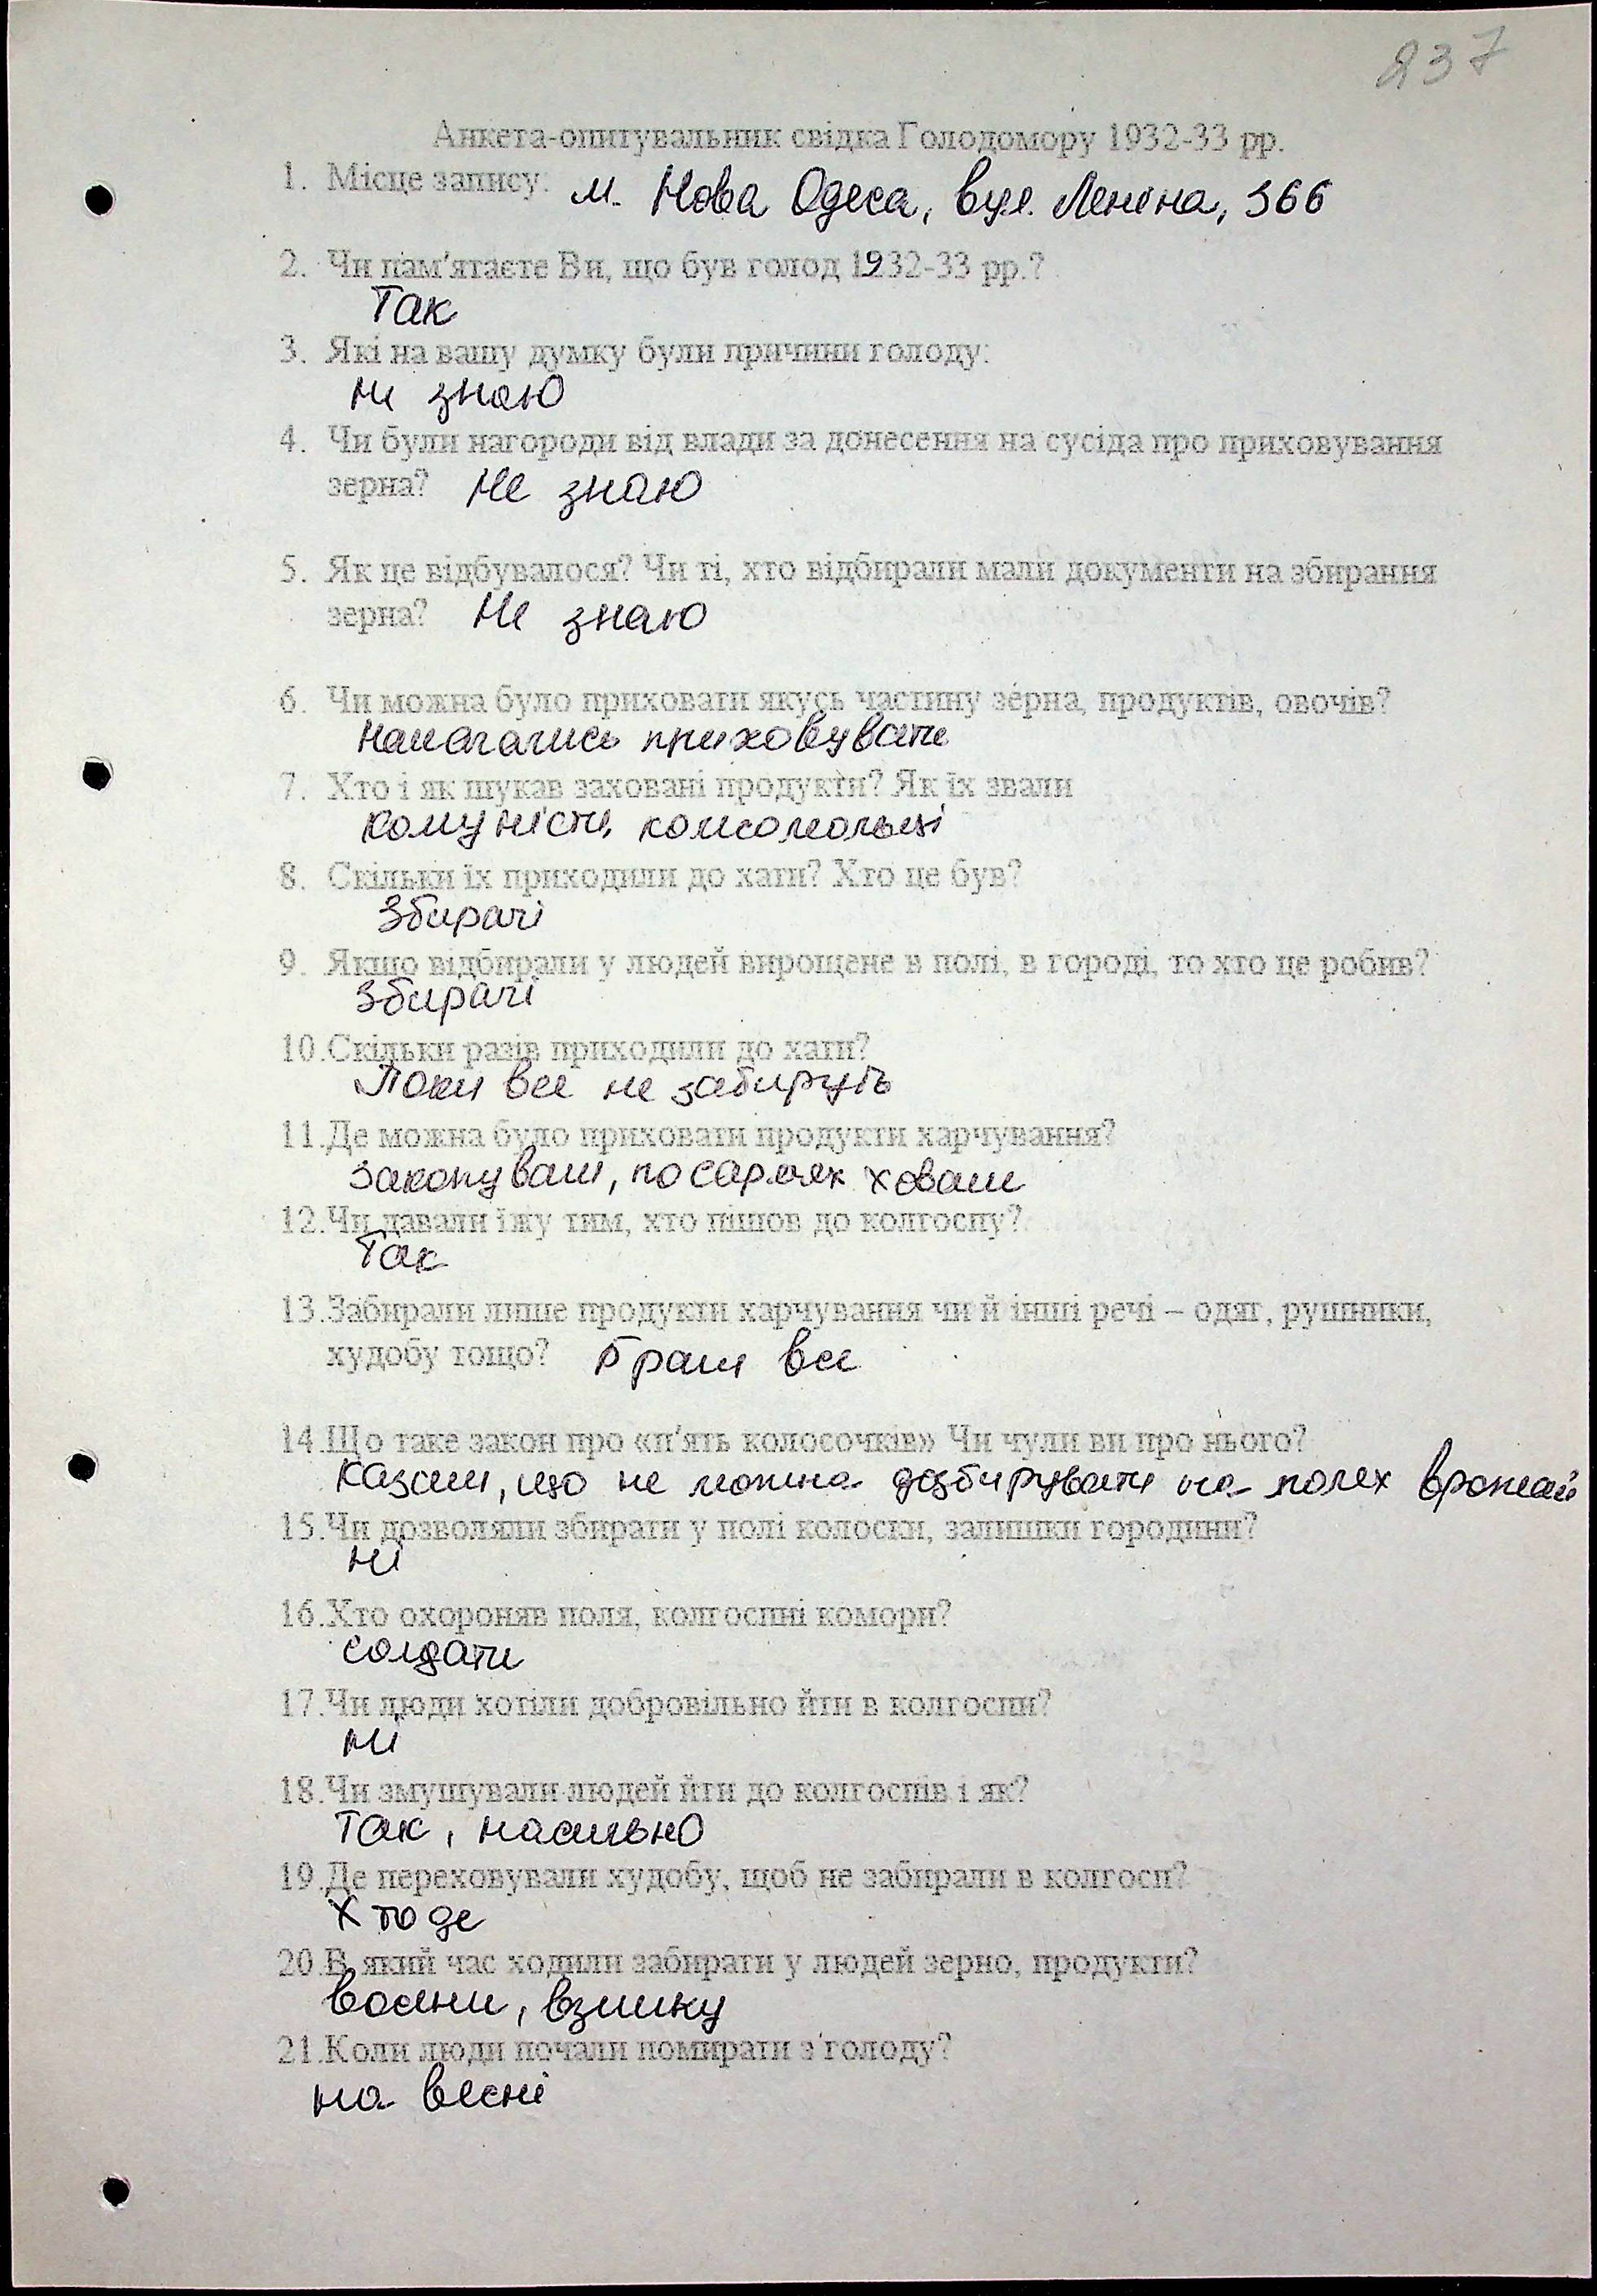 237
Анкета-опитувальник свідка Голодомору 1932-33 рр.
1. Місце запису: м. Нова Одеса, вул. Леніна, 366
2. Чи пам'ятаєте Ви, що був голод 1932-33 рр.?
Так
3. Які на вашу думку були причини голоду:
не знаю
4. Чи були нагороди від влади за донесення на сусіда про приховування
зерна? Не знаю
5. Як це відбувалося? Чи ті, хто відбирали мали документи на збирання
зерна? Не знаю
6. Чи можна було приховати якусь частину зерна, продуктів, овочів?
Намагались приховувати
7. Хто і як шукав заховані продукти? Як їх звали
комуністи, комсомольці
8. Скільки їх приходили до хати? Хто це був?
Збирачі
9. Якщо відбирали у людей вирощене в полі, в городі, то хто це робив?
Збирачі
10.Скільки разів приходили до хати?
Поки все не заберуть
11.Де можна було приховати продукти харчування?
Закопували, по сараях ховали
12.Чи давали їжу тим, хто пішов до колгоспу?
Так
13.Забирали лише продукти харчування чи й інші речі – одяг, рушники,
худобу тощо? Брали все
14.Що таке закон про «п'ять колосочків» Чи чули ви про нього?
Казали, що не можна на полях врожай
15.Чи дозволяли збирати у полі колоски, залишки городини?
ні
16.Хто охороняв поля, колгоспні комори?
солдати
17.Чи люди хотіли добровільно йти в колгоспи?
ні
18.Чи змушували людей йти до колгоспів і як?
Так, насильно
19.Де переховували худобу, щоб не забирали в колгосп?
Хто де
20.В який час ходили забирати у людей зерно, продукти?
восени, взимку
21.Коли люди почали помирати з голоду?
на весні